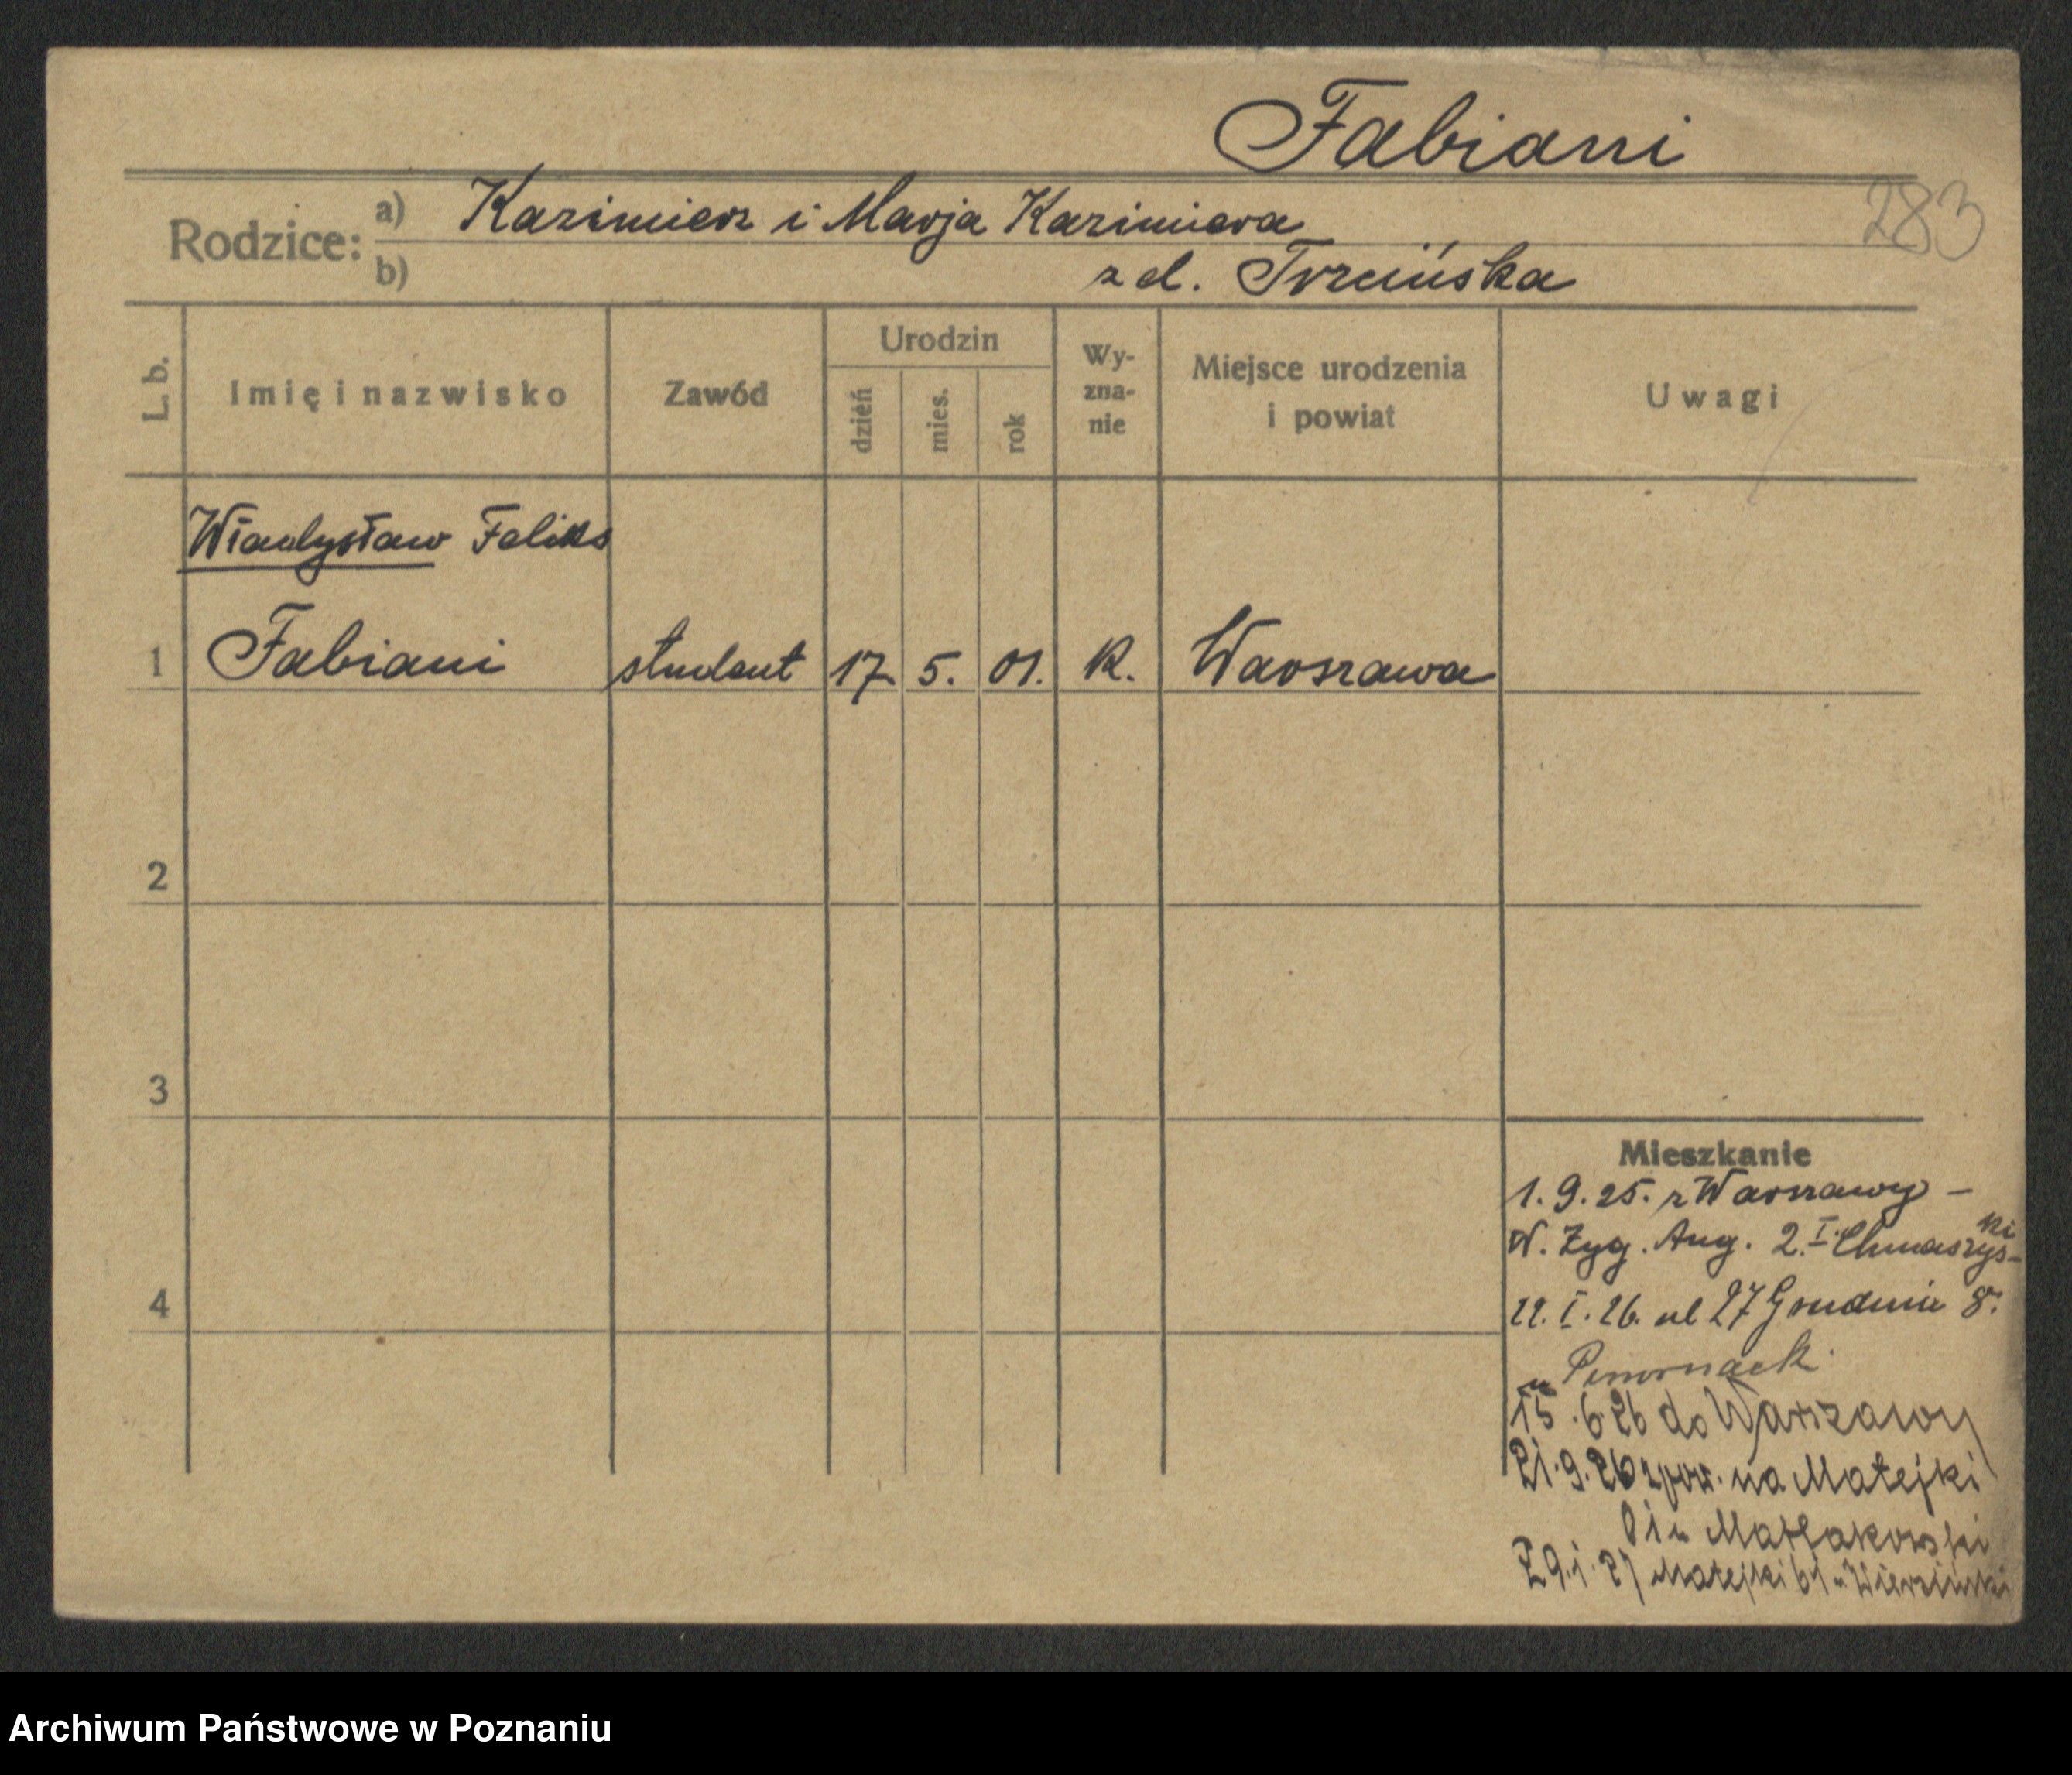 Fabiani
283
Rodzice: a) Kazimierz i Marja Kazimiera
b) z d. Trzcińska
L. b. Imię i nazwisko Zawód Urodzin dzień mies. rok Wy-zna-nie Miejsce urodzenia i powiat Uwagi
Władysław Feliks
1 Fabiani student 17. 5. 01. K. Warszawa
2
3
Mieszkanie
1.9.25. z Warszawy –
W. Zyg. Aug. 2. I. Chmaszys-ki
4
22. I. 26. ul 27 Grudnia 8.
u
15.6.26 do Warszawy
21.9.26 z pow. na Matejki
u Matlakowski
29.1.27 Matejki 61 u Wierziński
Archiwum Państwowe w Poznaniu